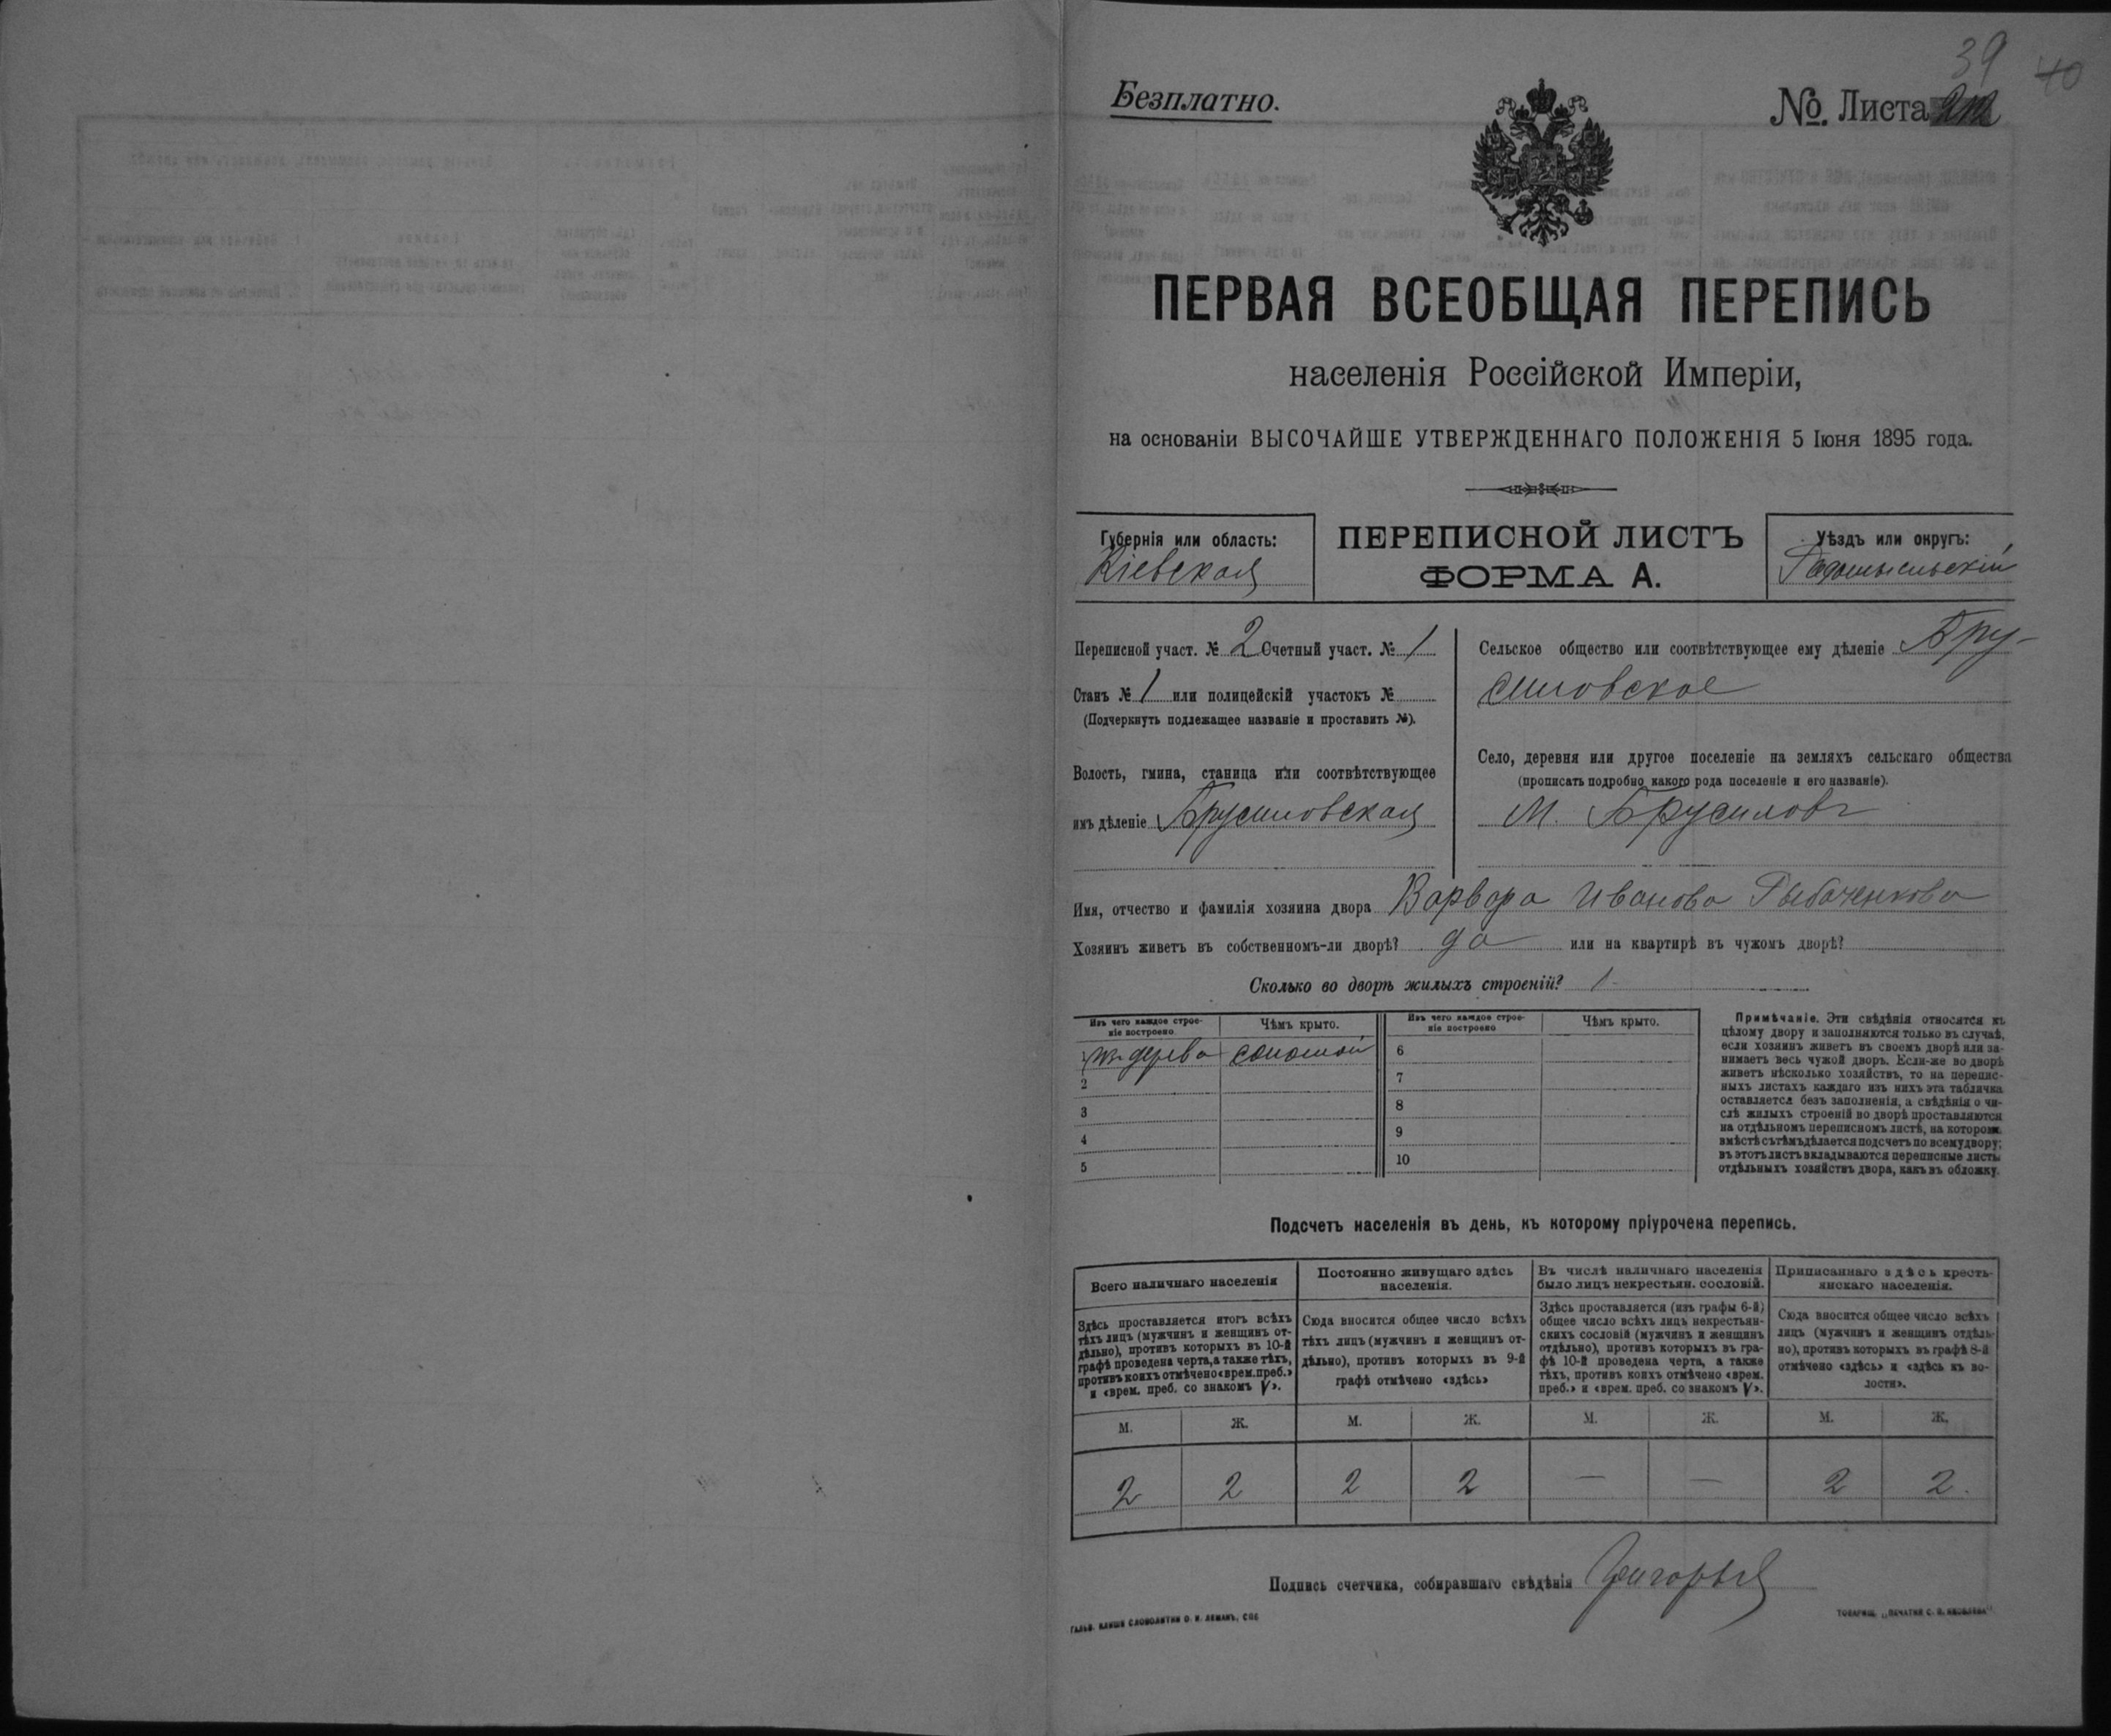 39 40
Безплатно.
№. Листа
ПЕРВАЯ ВСЕОБЩАЯ ПЕРЕПИСЬ
населенія Россійской Имперіи,
на основаніи ВЫСОЧАЙШЕ УТВЕРЖДЕННАГО ПОЛОЖЕНІЯ 5 Іюня 1895 года.
Губернія или область:
Кіевская
ПЕРЕПИСНОЙ ЛИСТЪ
ФОРМА А.
Уѣздъ или округъ:
Радомысльскій
Переписной участ. № 2 Счетный участ. № 1
Станъ № 1 или полицейскій участокъ №
(Подчеркнуть подлежащее названіе и проставить №).
Волость, гмина, станица или соотвѣтствующее
имъ дѣленіе Брусиловская
Сельское общество или соотвѣтствующее ему дѣленіе Бру-
силовское
Село, деревня или другое поселеніе на земляхъ сельскаго общества
(прописать подробно какого рода поселеніе и его названіе).
М. Брусиловъ
Имя, отчество и фамилія хозяина двора Варвара Иванова Рыбаченкова
Хозяинъ живетъ въ собственномъ-ли дворѣ? да или на квартирѣ въ чужомъ дворѣ?
Сколько во дворѣ жилыхъ строеній? 1
Изъ чего каждое строе-
ніе построено
Чѣмъ крыто.
Изъ чего каждое строе-
ніе построено
Чѣмъ крыто.
изъ дерева соломой
2
3
4
5
6
7
8
9
10
Примѣчаніе. Эти свѣдѣнія относятся къ
цѣлому двору и заполняются только въ случаѣ,
если хозяинъ живетъ въ своемъ дворѣ или за-
нимаетъ весь чужой дворъ. Если-же во дворѣ
живетъ нѣсколько хозяйствъ, то на перепис-
ныхъ листахъ каждаго изъ нихъ эта табличка
оставляется безъ заполненія, а свѣдѣнія о чи-
слѣ жилыхъ строеній во дворѣ проставляются
на отдѣльномъ переписномъ листѣ, на которомъ
вмѣстѣ съ тѣмъ дѣлается подсчетъ по всему двору;
въ этотъ листъ вкладываются переписные листы
отдѣльныхъ хозяйствъ двора, какъ въ обложку.
Подсчетъ населенія въ день, къ которому пріурочена перепись.
Всего наличнаго населенія
Здѣсь проставляется итогъ всѣхъ
тѣхъ лицъ (мужчинъ и женщинъ от-
дѣльно), противъ которыхъ въ 10-й
графѣ проведена черта, а также тѣхъ,
противъ коихъ отмѣчено «врем. преб.»
и «врем. преб. со знакомъ V».
Постоянно живущаго здѣсь
населенія.
Сюда вносится общее число всѣхъ
тѣхъ лицъ (мужчинъ и женщинъ от-
дѣльно), противъ которыхъ въ 9-й
графѣ отмѣчено «здѣсь»
Въ числѣ наличнаго населенія
было лицъ некрестьян. сословій.
Здѣсь проставляется (изъ графы 6-й)
общее число всѣхъ лицъ некрестьян-
скихъ сословій (мужчинъ и женщинъ
отдѣльно), противъ которыхъ въ гра-
фѣ 10-й проведена черта, а также
тѣхъ, противъ коихъ отмѣчено «врем.
преб.» и «врем. преб. со знакомъ V».
Приписаннаго здѣсь кресть-
янскаго населенія.
Сюда вносится общее число всѣхъ
лицъ (мужчинъ и женщинъ отдѣль-
но), противъ которыхъ въ графѣ 8-й
отмѣчено «здѣсь» и «здѣсь въ во-
лости».
М. Ж. М. Ж. М. Ж. М. Ж.
2 2 2 2 — — 2 2.
Подпись счетчика, собиравшаго свѣдѣнія
ГАЛЬВ. КЛИШЕ СЛОВОЛИТНИ О. И. ЛЕМАНЪ, СПБ
ТОВАРИЩ. „ПЕЧАТНЯ С. П. ЯКОВЛЕВА"